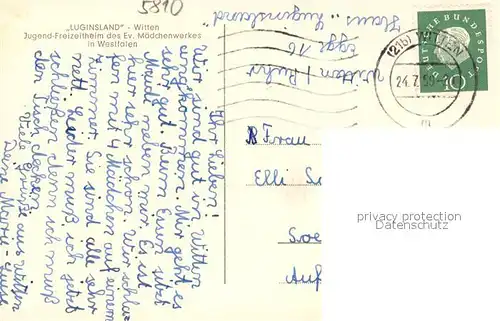 5810
„LUGINSLAND" - Witten
Jugend-Freizeitheim des Ev. Mädchenwerkes
in Westfalen
Ihr Lieben!
Wir sind gut in Witten
eingekommen. Mir geht es
sehr gut. Beim Essen sitzt
Heidi neben mir. Es ist
hier sehr schön. Wir schlafen
mit 4 Mädchen auf einem
Zimmer. Sie sind alle sehr
nett. Leider muß ich jetzt
schließen denn ich muß
den Tisch decken.
Viele Grüße aus Witten
Deine Marie-Luise
Haus "Luginsland"
Egge 16
Witten / Ruhr
(21b) WITTEN
24.7.59
DEUTSCHE BUNDESPOST
10
Frau
Elli
Soe
Auf
privacy protection
Datenschutz